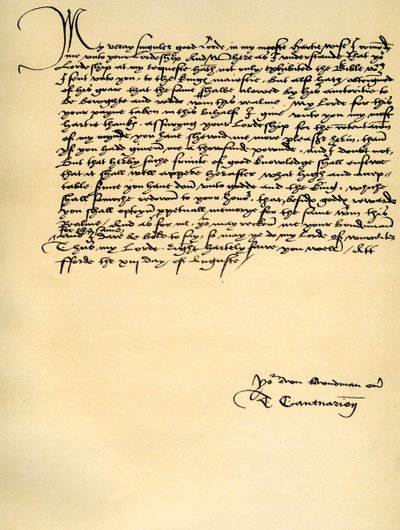 My veray singuler good Lorde, in my moste hartie wise I comend
me unto your Lordeship. And where as I understande that yor
Lordeship at my requeste hath not only exhibited the Bible wch
I sent unto you, to the Kinges maiestie, but also hath obteigned
of his grace that the same shalbe alowed by his auctoritie to
be boughte and redde wthin this realme, My Lorde for this
your payne taken in this behalf, I give unto you my most
hartie thanks, assuryng your Lordeship for the contentacion
of my mynde, you have shewed me more pleasour herin, than
yf you hadd given me a thowsande pownde, and I doubt not,
But that hereby suche fruicte of good knowledge shall ensewe
that it shall well appere hereafter what high and accep-
table service you have don unto godde and the king, whiche
shall somoche redown to your honor, that, besids godds rewarde
you shall opteyn perpetuall memorye for the same wthin this
Realme. And as for me, you may recken me your bondeman
for the same
and I dare be bold to say, so may ye do my Lorde of Worceter
Thus my Lorde, right hartely fare you well. Att
fforde the xiii day of Auguste
Yor own boundman ever
T Cantuarien